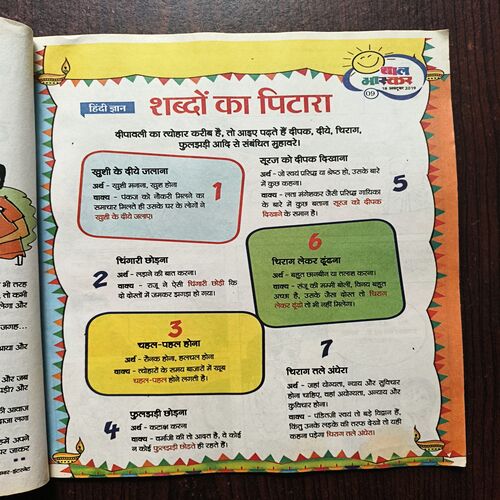 बाल
भास्कर
09
18 अक्टूबर 2019
हिंदी ज्ञान
शब्दों का पिटारा
दीपावली का त्योहार करीब है, तो आइए पढ़ते हैं दीपक, दीये, चिराग,
फुलझड़ी आदि से संबंधित मुहावरे।
खुशी के दीये जलाना
अर्थ - खुशी मनाना, खुश होना
वाक्य - पंकज को नौकरी मिलने का
समाचार मिलते ही उसके घर के लोगों ने
खुशी के दीये जलाए।
1
2
चिंगारी छोड़ना
अर्थ - लड़ाने की बात करना।
वाक्य - राजू ने ऐसी चिंगारी छोड़ी कि
दो दोस्तों में जमकर झगड़ा हो गया।
3
चहल-पहल होना
अर्थ - रौनक होना, हलचल होना
वाक्य - त्योहारों के समय बाजारों में खूब
चहल-पहल होने लगती है।
4
फुलझड़ी छोड़ना
अर्थ - कटाक्ष करना
वाक्य - वर्माजी की तो आदत है, वे कोई
न कोई फुलझड़ी छोड़ते ही रहते हैं।
सूरज को दीपक दिखाना
अर्थ - जो स्वयं प्रसिद्ध या श्रेष्ठ हो, उसके बारे
में कुछ कहना।
वाक्य - लता मंगेशकर जैसी प्रसिद्ध गायिका
के बारे में कुछ बताना सूरज को दीपक
दिखाने के समान है।
5
6
चिराग लेकर ढूंढना
अर्थ - बहुत छानबीन या तलाश करना।
वाक्य - संजू की मम्मी बोलीं, विनय बहुत
अच्छा है, उसके जैसा दोस्त तो चिराग
लेकर ढूंढो तो भी नहीं मिलेगा।
7
चिराग तले अंधेरा
अर्थ - जहां योग्यता, न्याय और सुविचार
होना चाहिए, वहां अयोग्यता, अन्याय और
कुविचार होना।
वाक्य - पंडितजी स्वयं तो बड़े विद्वान हैं,
किंतु उनके लड़के की तरफ देखो तो यही
कहना पड़ेगा चिराग तले अंधेरा।
भी तरह
तो कभी
लेगा और
जगह...
आया और
और जब
पड़ी? और
की आवाज
राजा लगा
में अपने
पर जाकर